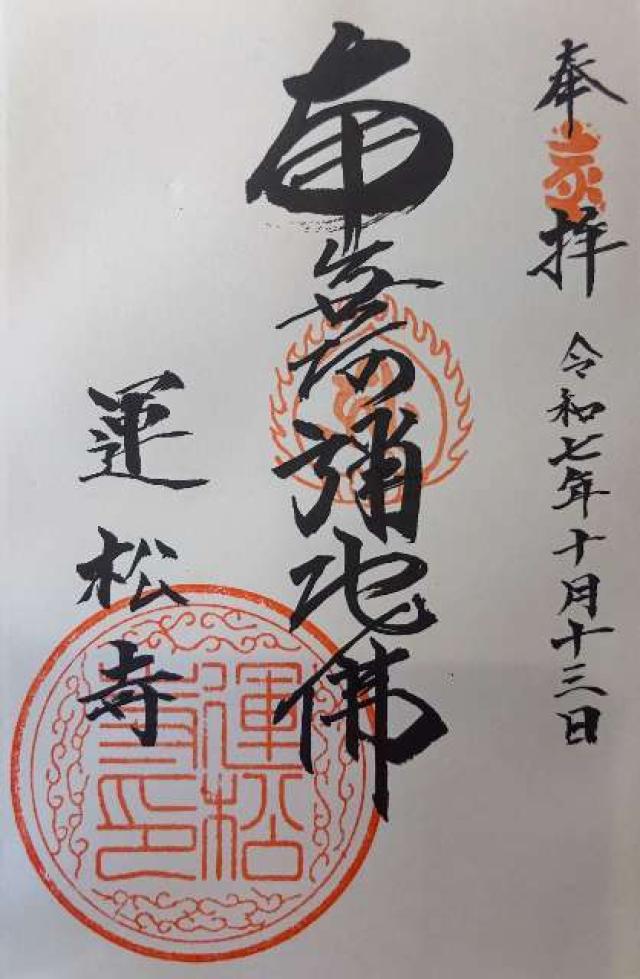 奉拝
令和七年十月十三日
南無阿彌陀佛
運松寺
運松
寺印